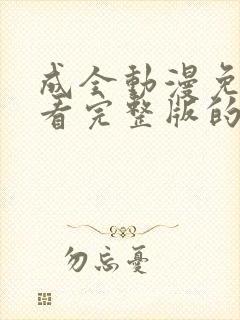 成全動漫免
看完整版的
勿忘憂